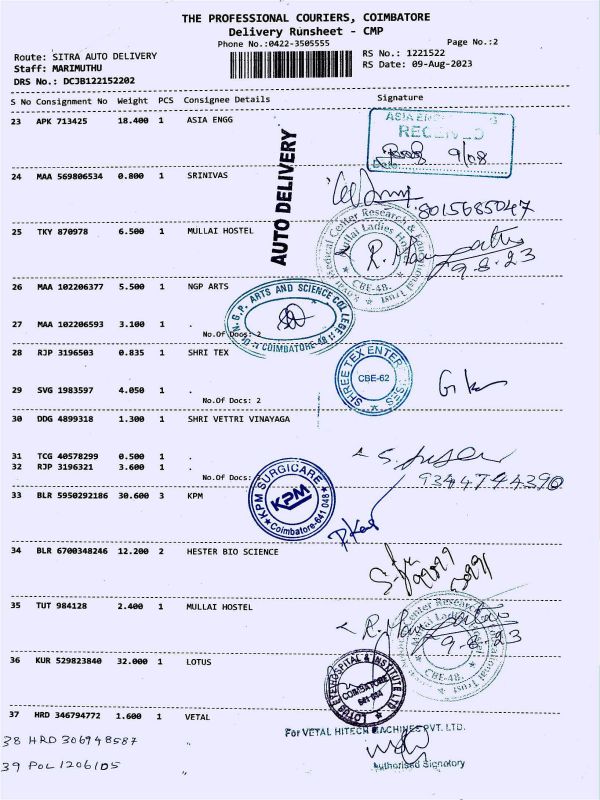 THE PROFESSIONAL COURIERS, COIMBATORE
Delivery Runsheet - CMP
Phone No.:0422-3505555 Page No.:2
Route: SITRA AUTO DELIVERY RS No.: 1221522
Staff: MARIMUTHU RS Date: 09-Aug-2023
DRS No.: DCJB122152202
S No Consignment No Weight PCS Consignee Details Signature
23 APK 713425 18.400 1 ASIA ENGG
RECEIVED
9/08
AUTO DELIVERY
24 MAA 569806534 0.800 1 SRINIVAS
8015685047
25 TKY 870978 6.500 1 MULLAI HOSTEL
Medical Center Research & Educational Trust
Mullai Ladies Hostel
CBE-48.
9.8.23
26 MAA 102206377 5.500 1 NGP ARTS
Dr. N.G.P. ARTS AND SCIENCE COLLEGE
COIMBATORE-48
27 MAA 102206593 3.100 1 .
No.Of Docs: 2
28 RJP 3196503 0.835 1 SHRI TEX
SHREE TEX ENTERPRISES
CBE-62
29 SVG 1983597 4.050 1 .
No.Of Docs: 2
30 DDG 4899318 1.300 1 SHRI VETTRI VINAYAGA
31 TCG 40578299 0.500 1 .
32 RJP 3196321 3.600 1 .
No.Of Docs:
9344744390
33 BLR 5950292186 30.600 3 KPM
KPM SURGICARE
KPM
Coimbatore-641 048
34 BLR 6700348246 12.200 2 HESTER BIO SCIENCE
35 TUT 984128 2.400 1 MULLAI HOSTEL
9.8.23
CBE-48.
36 KUR 529823840 32.000 1 LOTUS
LOTUS EYE HOSPITAL & INSTITUTE LTD
COIMBATORE
641 014
37 HRD 346794772 1.600 1 VETAL
For VETAL HITECH MACHINES PVT. LTD.
38 HRD 306948587 "
Authorised Signatory
39 POL 1206105 "